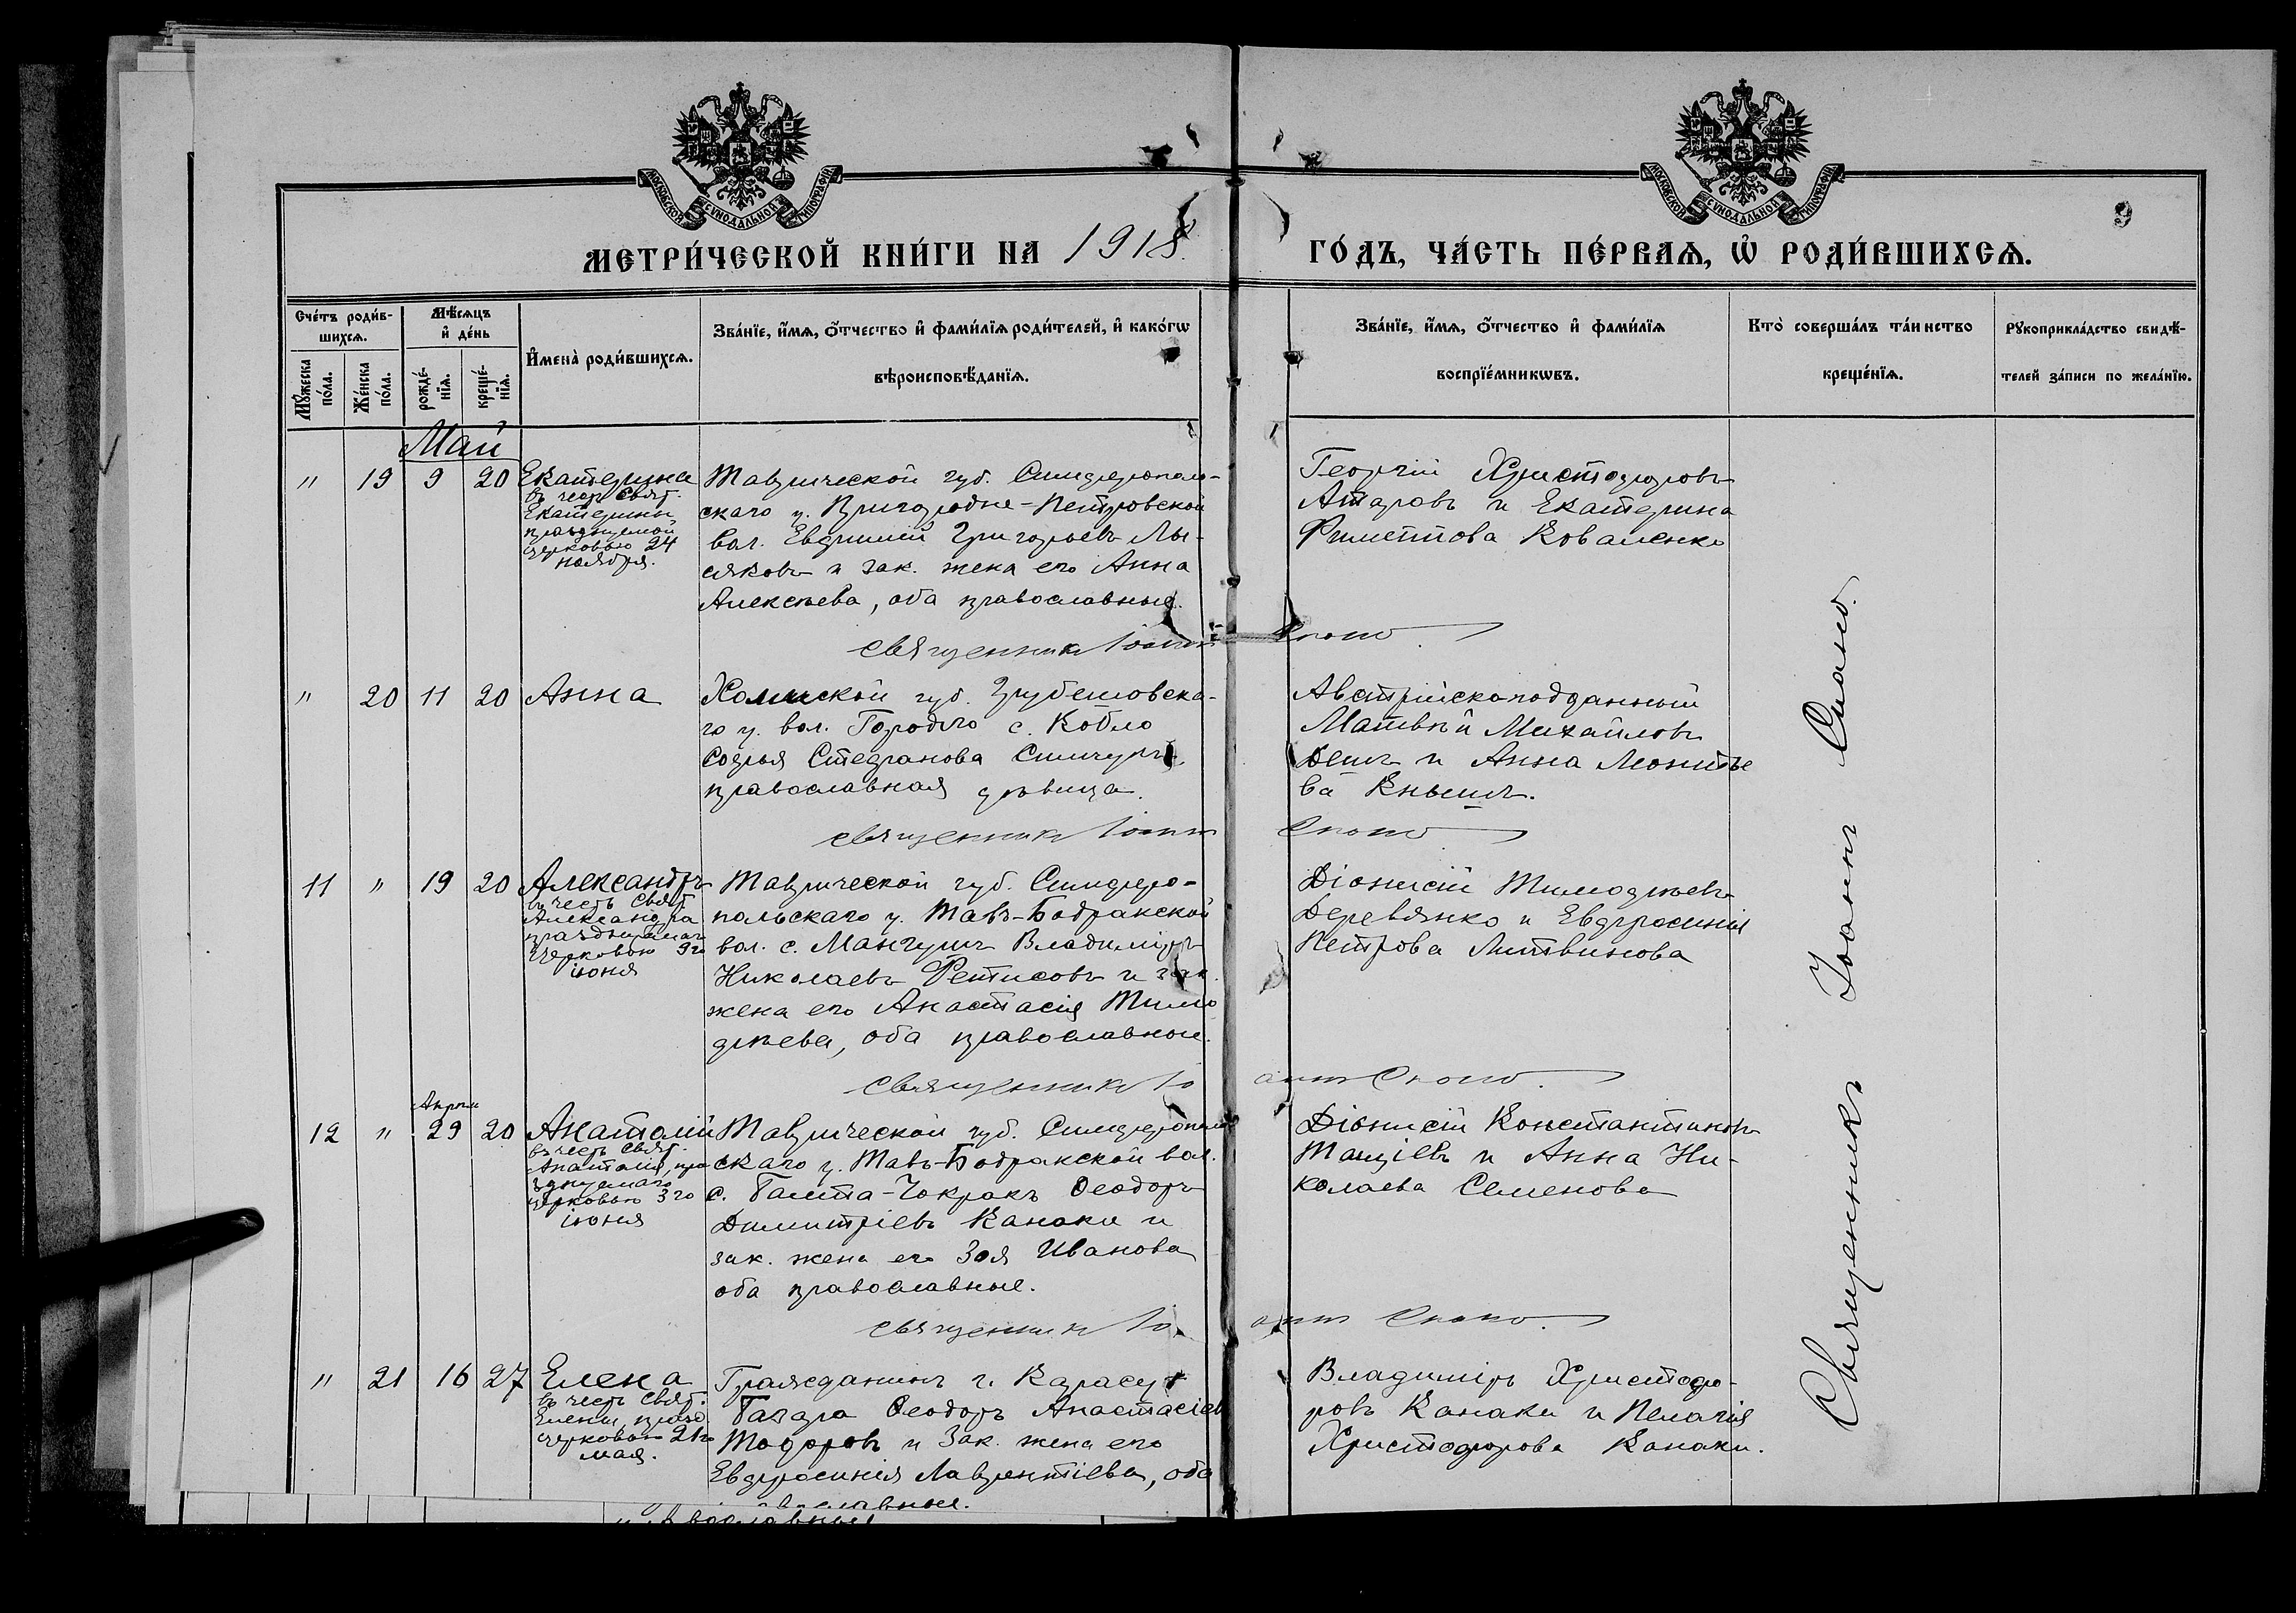 МОСКОВСКОЙ СѴНОДАЛЬНОЙ ТИПОГРАФІИ
МОСКОВСКОЙ СѴНОДАЛЬНОЙ ТИПОГРАФІИ
9
МЕТРИ́ЧЕСКОЙ КНИ́ГИ НА 1918
ГО́ДЪ, ЧА́СТЬ ПЕ́РВАѦ, Ѡ҆ РОДИ́ВШИХСѦ.
Сче́тъ роди́в-
шихсѧ.
Мꙋ́жеска по́ла.
Же́нска по́ла.
Мѣ́сѧцъ
и҆ де́нь
рожде́-
нїѧ.
креще́-
нїѧ.
И҆мена̀ роди́вшихсѧ.
Зва́нїе, и҆́мѧ, ѻ҆́тчество и҆ фами́лїѧ роди́телей, и҆ како́гѡ
вѣроисповѣ́данїѧ.
Зва́нїе, и҆́мѧ, ѻ҆́тчество и҆ фами́лїѧ
воспрїе́мникѡвъ.
Кто̀ соверша́лъ та́инство
креще́нїѧ.
Рꙋкоприкла́дство свидѣ́-
телей за́писи по жела́нїю.
Май
" 19 9 20 Екатерина
въ честь свят.
Екатерины
празднуемой
церковью 24
ноября.
Таврической губ. Симферополь-
скаго у. Пригородне-Петровской
вол. Евфимій Григорьевъ Лы-
сяковъ и зак. жена его Анна
Алексѣева, оба православные.
Георгій Христофоровъ
Атаровъ и Екатерина
Коваленко
священникъ Іоаннъ
" 20 11 20 Анна
Холмской губ. Грубешовска-
го у. вол. Городло с. Кобло
Софья Стефанова
православная дѣвица.
Австрійскоподданный
Матвѣй Михайловъ
и Анна
ва
священникъ Іоаннъ
11 " 19 20 Александръ
въ честь свят.
Александра
празднуемаго
церковью 9го
іюня
Таврической губ. Симферо-
польскаго у. Тавъ-Бодракской
вол. с. Мангушъ Владиміръ
Николаевъ Фетисовъ и зак.
жена его Анастасія Тимо
фѣева, оба православные.
Діонисій Тимофѣевъ
Деревянко и Евфросинія
Петрова Литвинова
священникъ Іо
аннъ
12 " Апрѣля 29 20 Анатолій
въ честь свят.
Анатолія, пра
зднуемаго
церковью 3го
іюня
Таврической губ. Симферополь
скаго у. Тавъ-Бодракской вол.
с. Балта-Чокракъ Ѳеодоръ
Димитріевъ Канаки и
зак. жена его Зоя Иванова
оба православные.
Діонисій Константиновъ
и Анна Ни-
колаева Семенова
священникъ Іо
аннъ
" 21 16 27 Елена
въ честь свят.
Елены, празд.
церковью 21го
мая.
Гражданинъ г. Карасу
Базара Ѳеодоръ Анастасіев
Тодоровъ и зак. жена его
Евфросинія Лаврентіева, оба
православные.
Владиміръ Христофо-
ровъ Канаки и Пелагія
Христофорова Канаки.
Священникъ Іоаннъ
православные